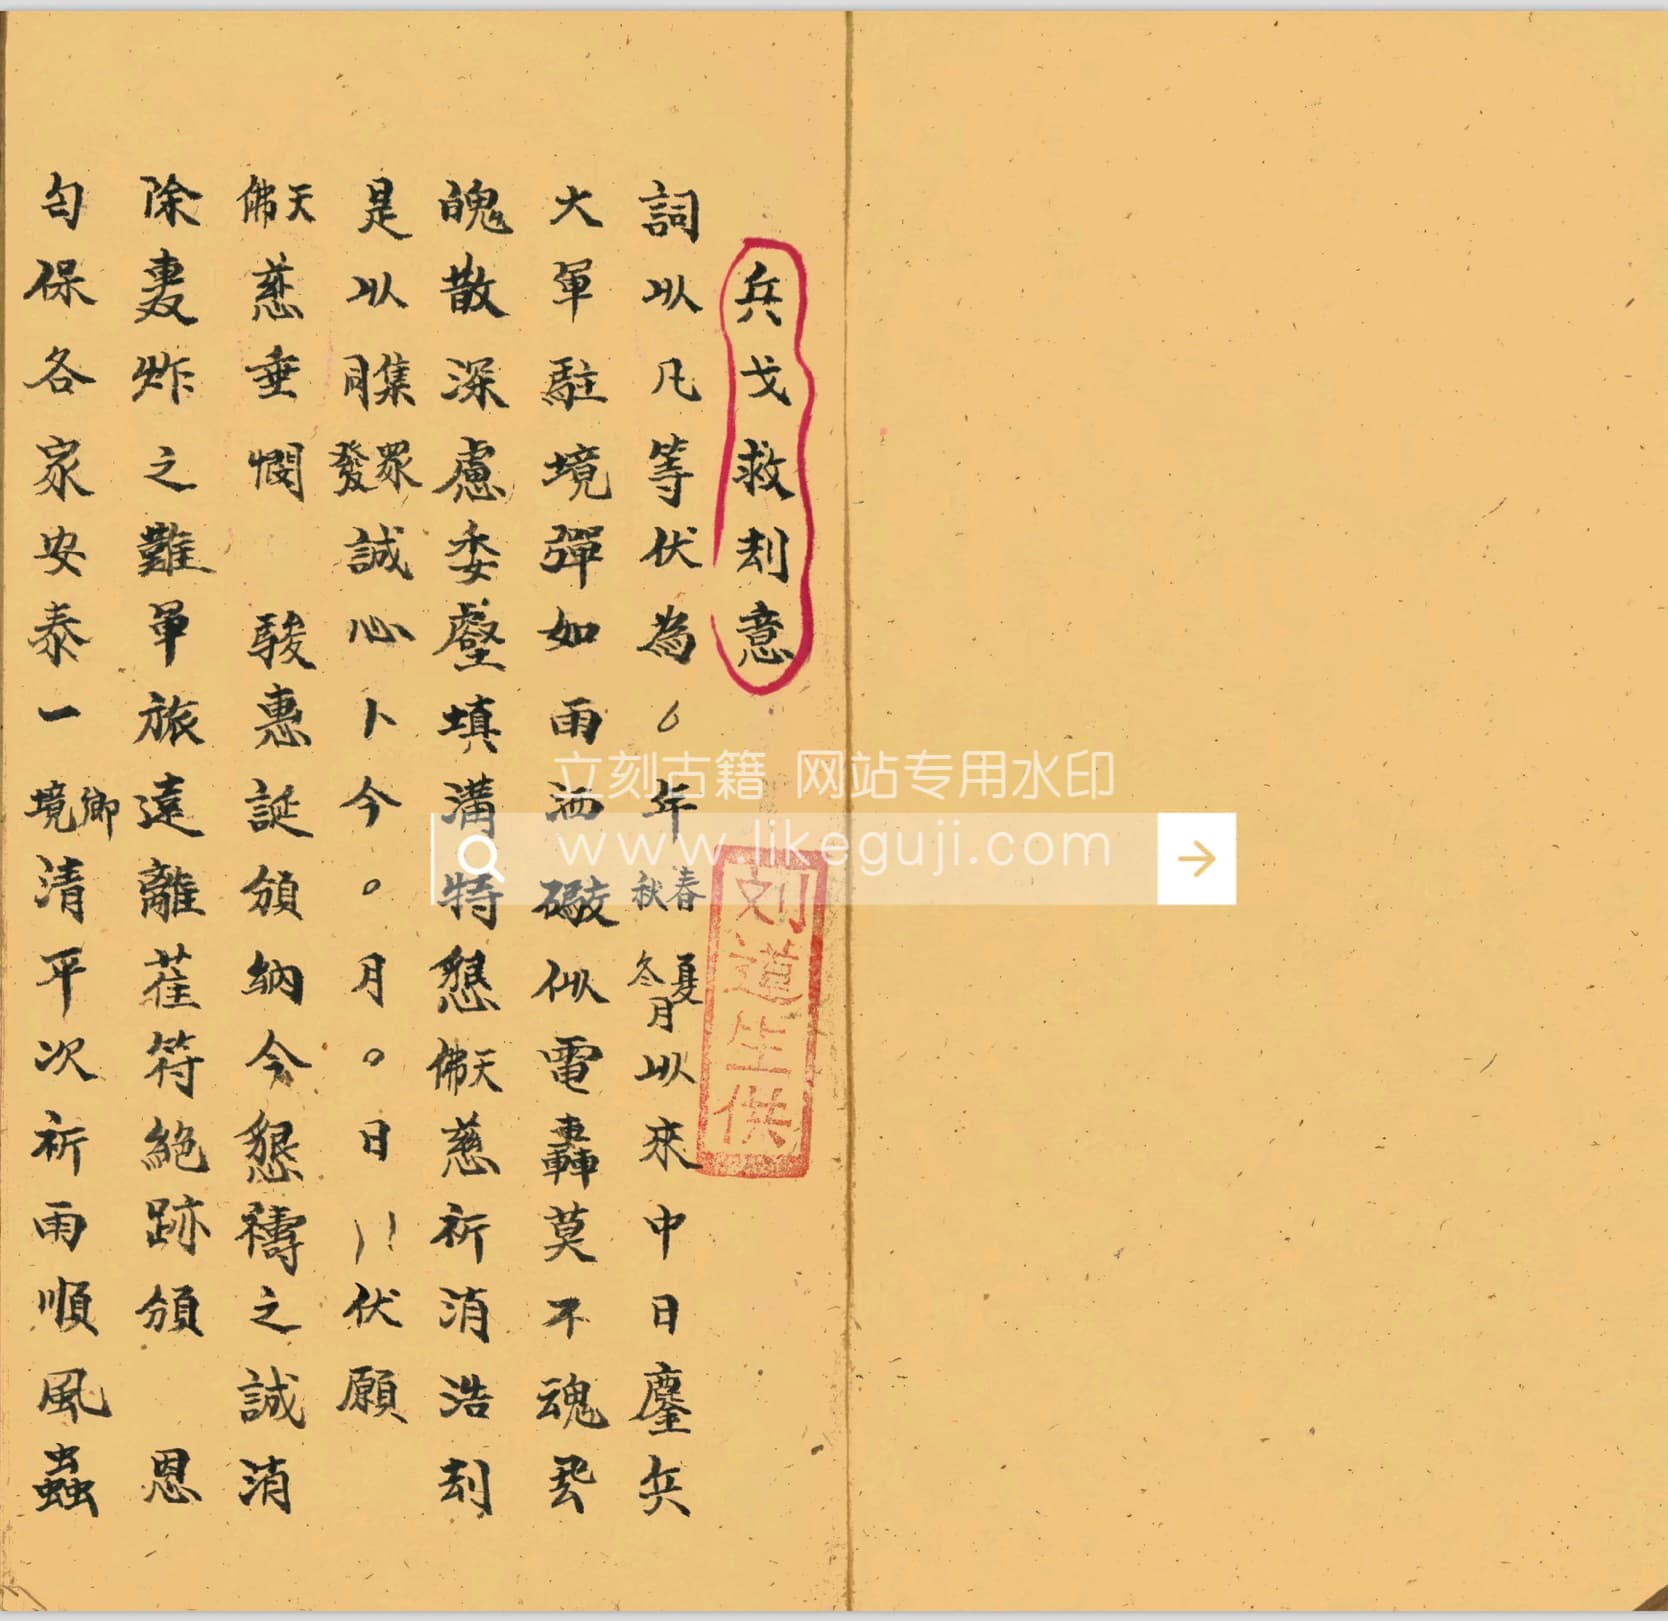 兵戈救刦意
詞以凡等伏為 年春夏秋冬月以來中日鏖兵
大軍駐境彈如雨洒礮似電轟莫不魂飛
魄散深慮委壑填溝特懇天佛慈祈消浩刦
是以集眾同發誠心卜今〇月〇日 伏願
天佛慈垂憫 駿惠誕頒納今懇禱之誠消
除轟炸之難軍旅遠離萑苻絕跡頒 恩
匀保各家安泰一鄉境清平次祈雨順風
刘道生供
立刻古籍 网站专用水印
www.likeguji.com